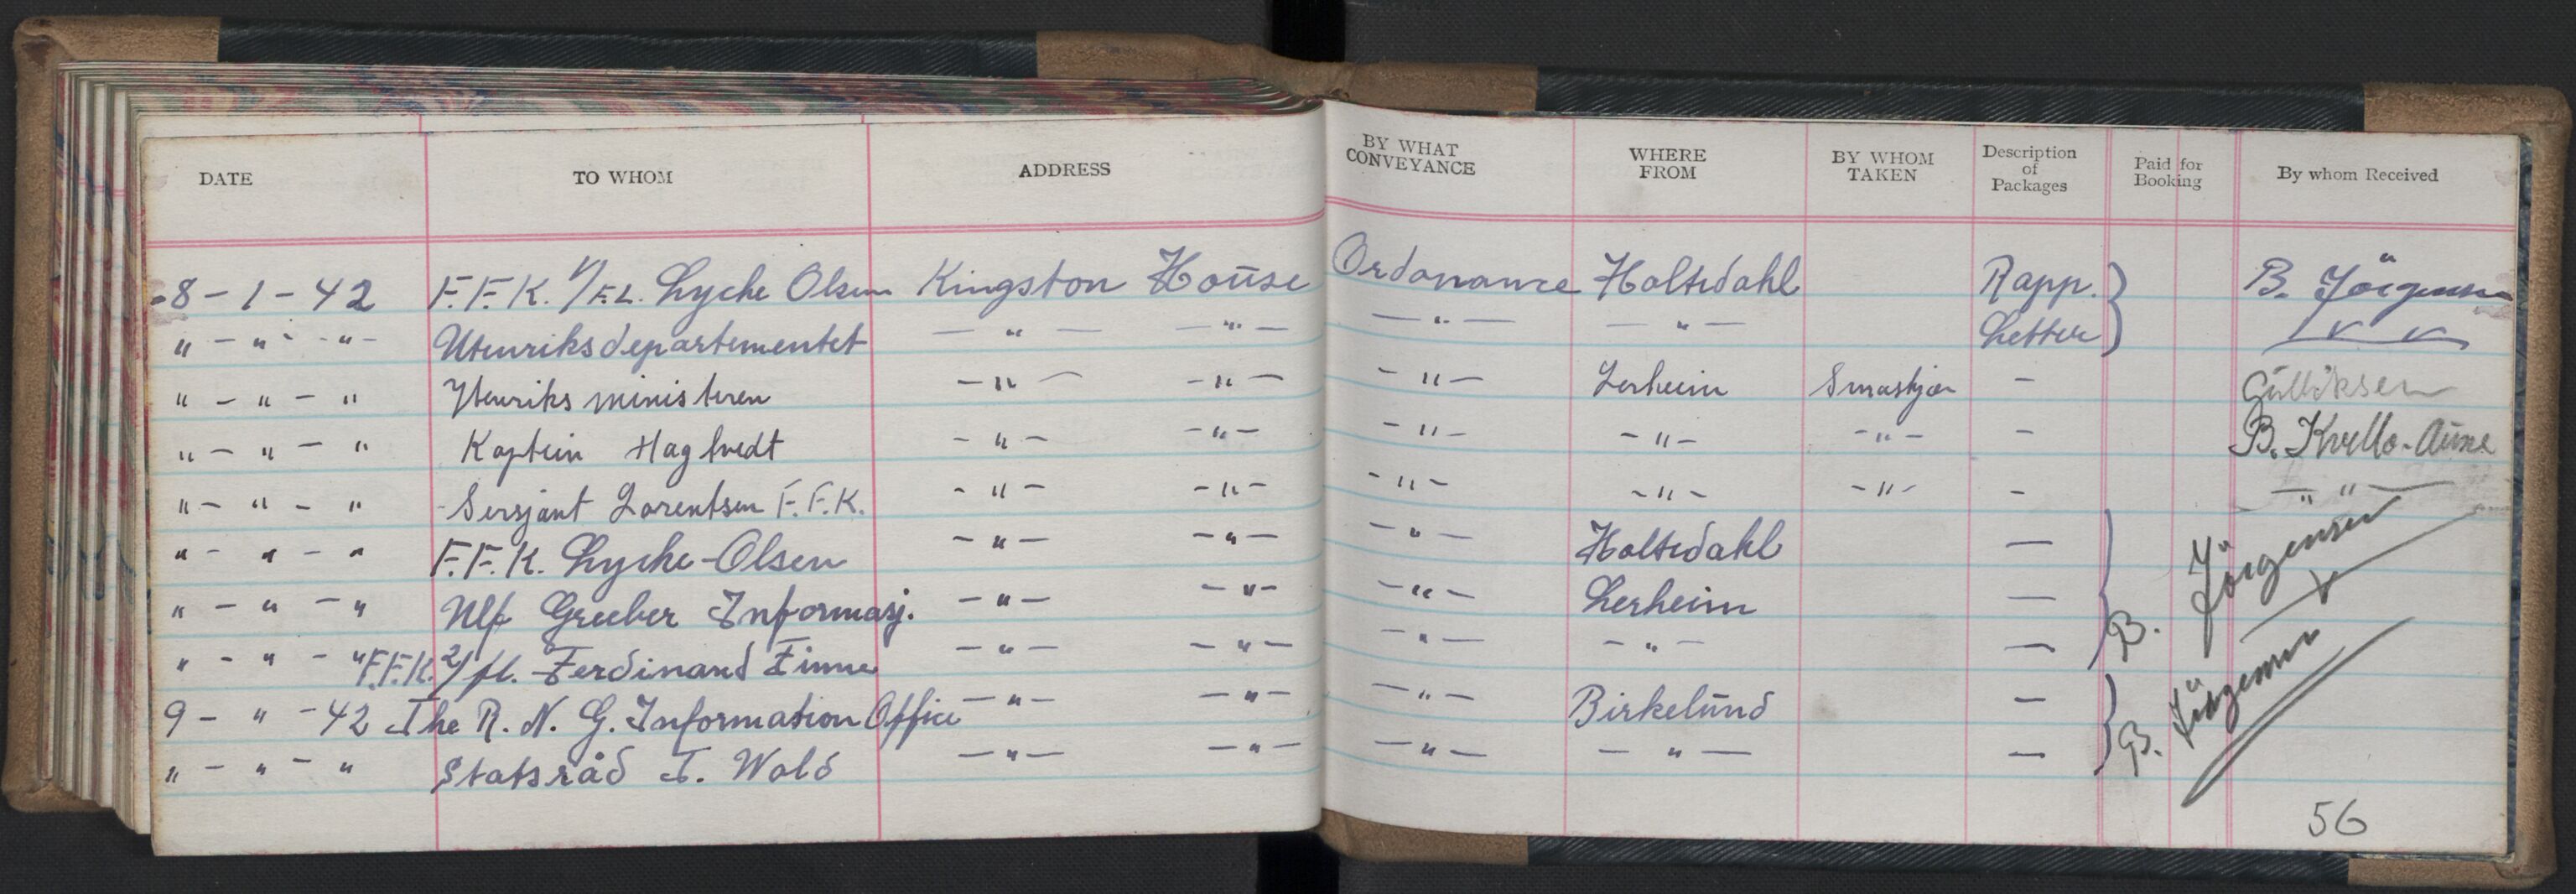 DATE TO WHOM ADDRESS BY WHAT CONVEYANCE WHERE FROM BY WHOM TAKEN Description of Packages Paid for Booking By whom Received
8 - 1 - 42 F.F.K. V/F.L. Lyche Olsen Kingston House Ordonance Holtedahl Rapp. B. Jörgensen
" - " - " - Utenriksdepartementet — " — — " — — " — — " — Letter
" - " - " Utenriksministeren - " - - " - - " - Lerheim Småskjær -
" - " - " Kaptein Hagtvedt - " - - " - - " - - " - - " - - B. Kvello-Aune
" - " - " Sersjant Lorentsen F.F.K. - " - - " - - " - - " - - " - - — " " —
" - " - " F.F.K. Lyche-Olsen - " - - " - - " - Holtedahl — B. Jörgensen
" - " - " Ulf Greeber Informasj. - " - - " - - " - Lerheim —
" - " - " F.F.K. 2/fl. Ferdinand Finne - " - - " - - " - - " - —
9 - " - 42 The R. N. G. Information Office - " - - " - - " - Birkelund — B. Jörgensen
" - " - " Statsråd T. Wold - " - - " - - " - — " — —
56